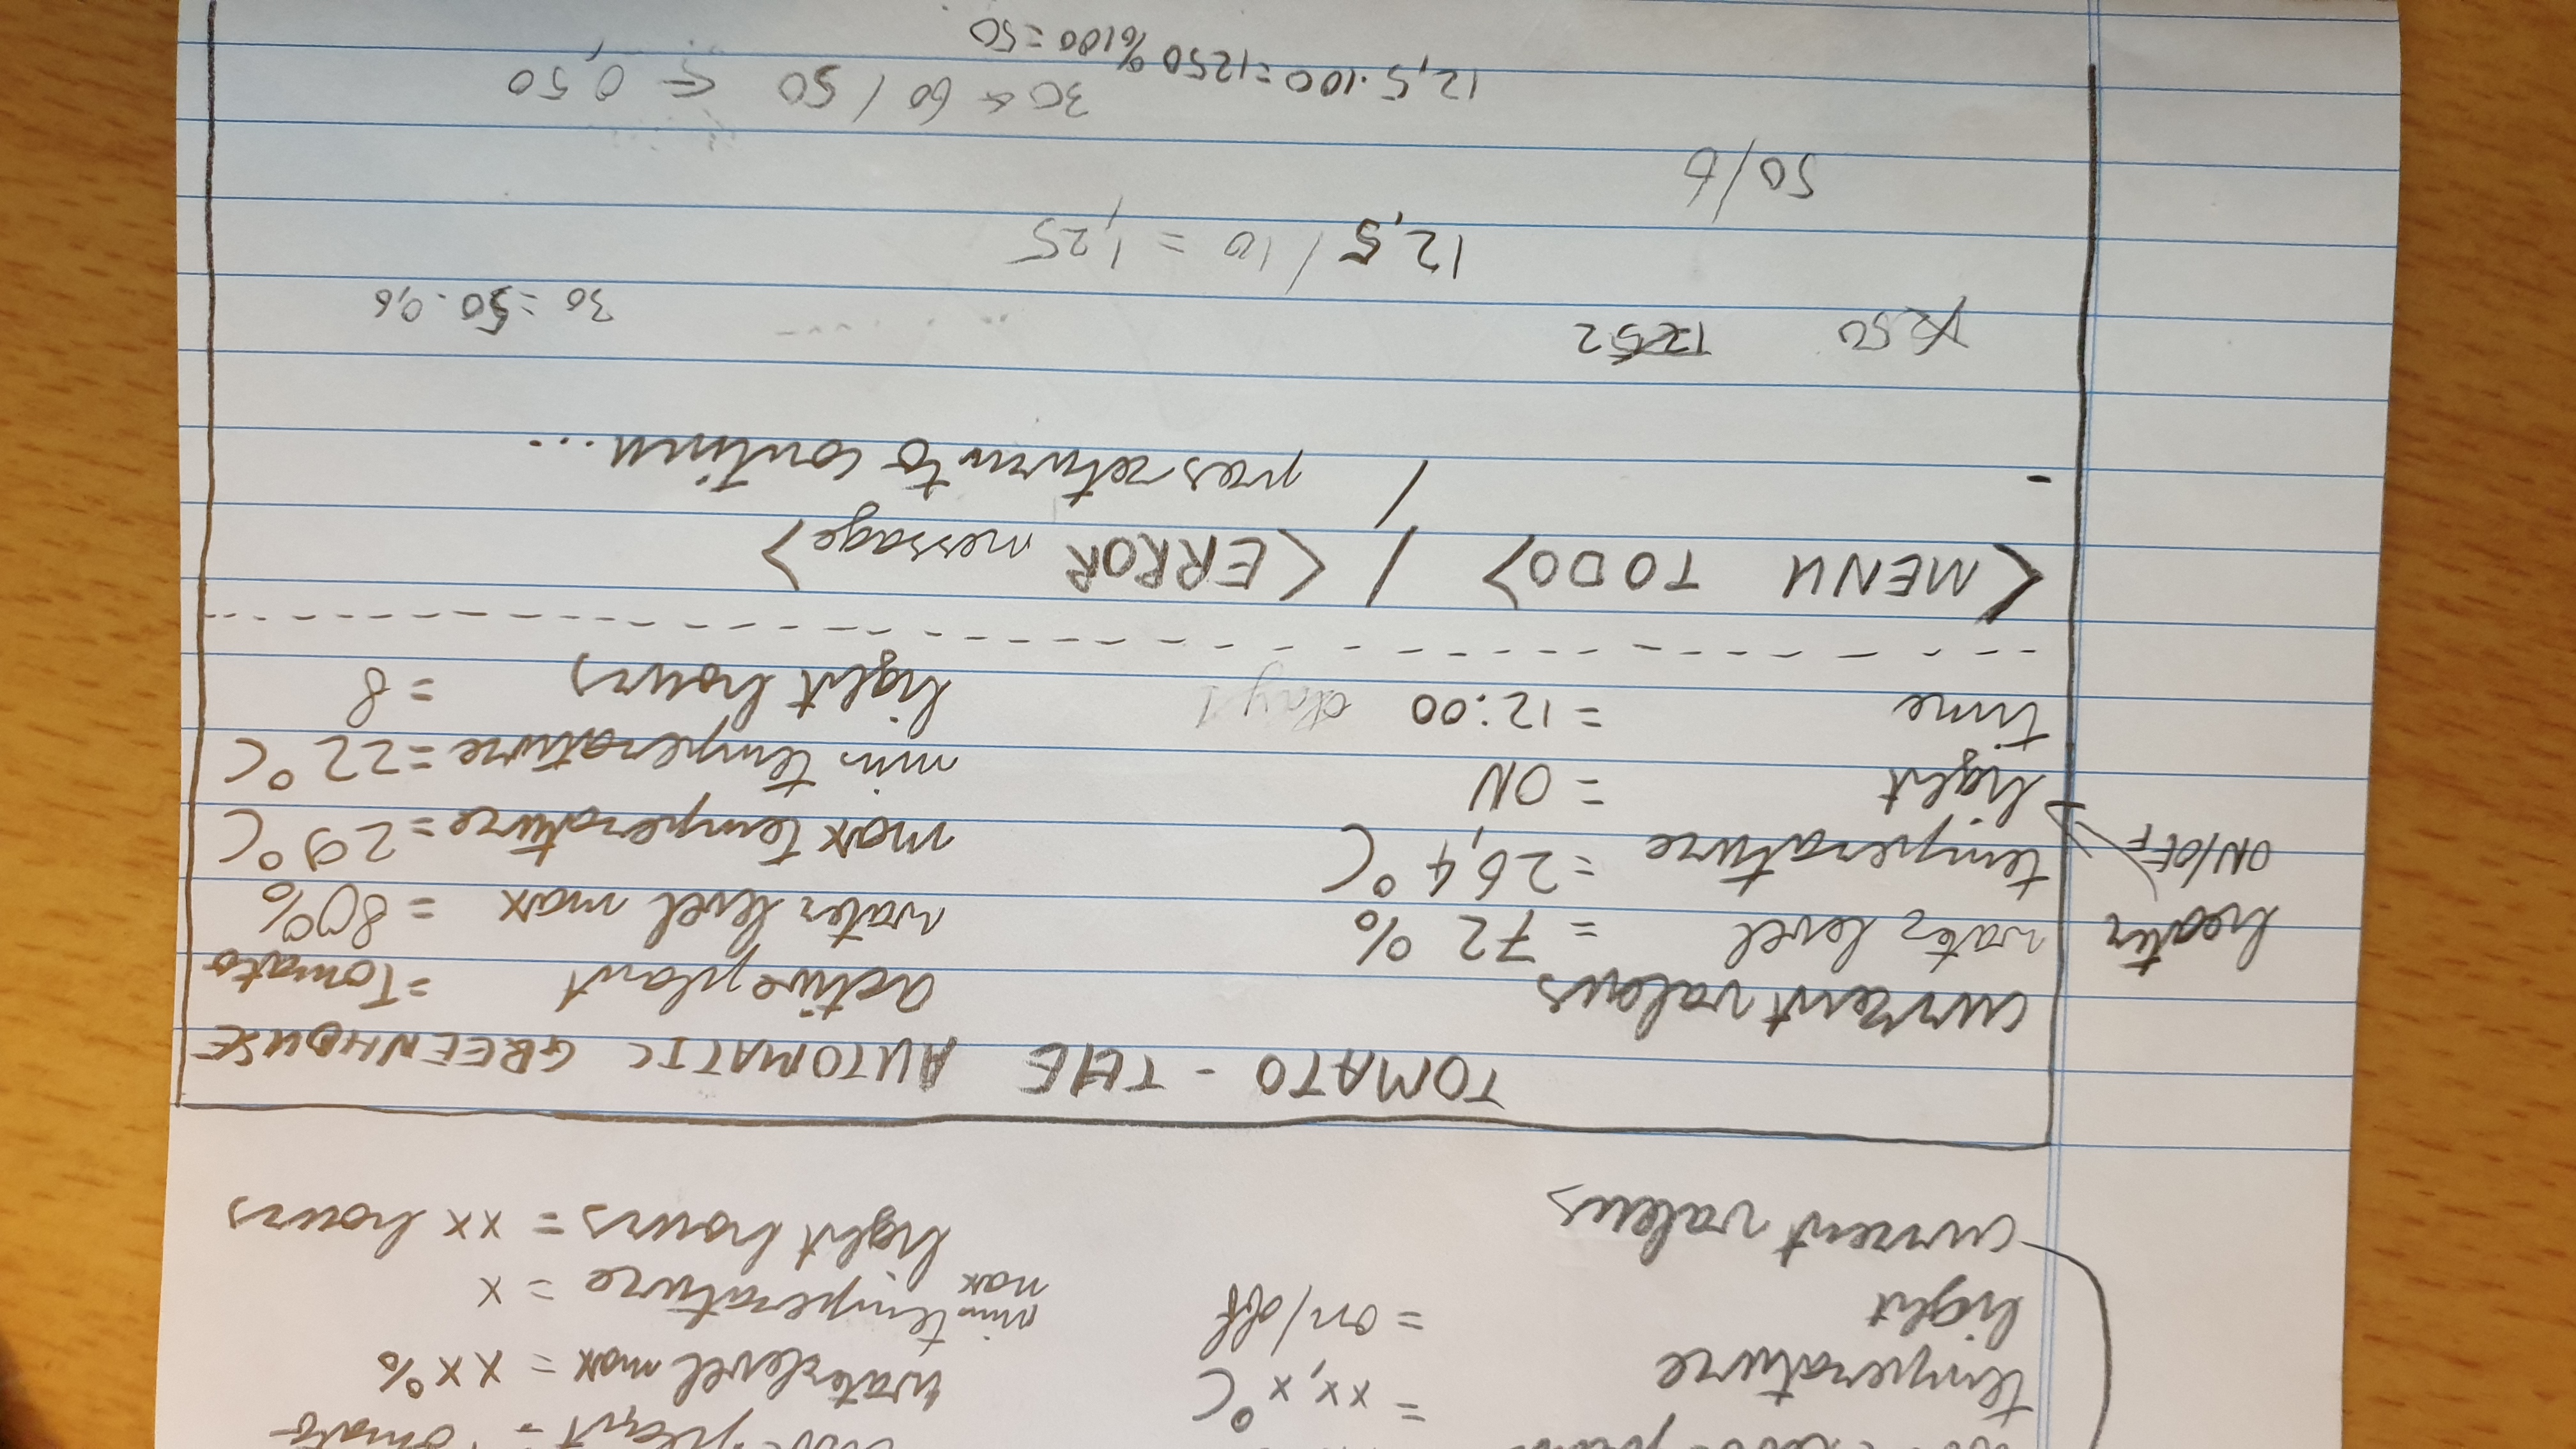 temperature = xx,x°C
light = on/off
current valeus
plant = Tomato
waterlevel max = xx%
min max temperature = x
light hours = xx hours
TOMATO - THE AUTOMATIC GREENHOUSE
current valeus
water level = 72 %
temperature = 26,4 °C
light = ON
time = 12:00 day 1
heater
ON/OFF
active plant = Tomato
water level max = 80%
max temperature = 29°C
min temperature = 22°C
light hours = 8
<MENU TODO> / <ERROR message>
- / pres return to continu...
50 1252
30 = 50 . 0,6
12,5 / 10 = 1,25
50/6
30 ← 60 / 50 ← 0,50
12,5 . 100 = 1250 % 100 = 50